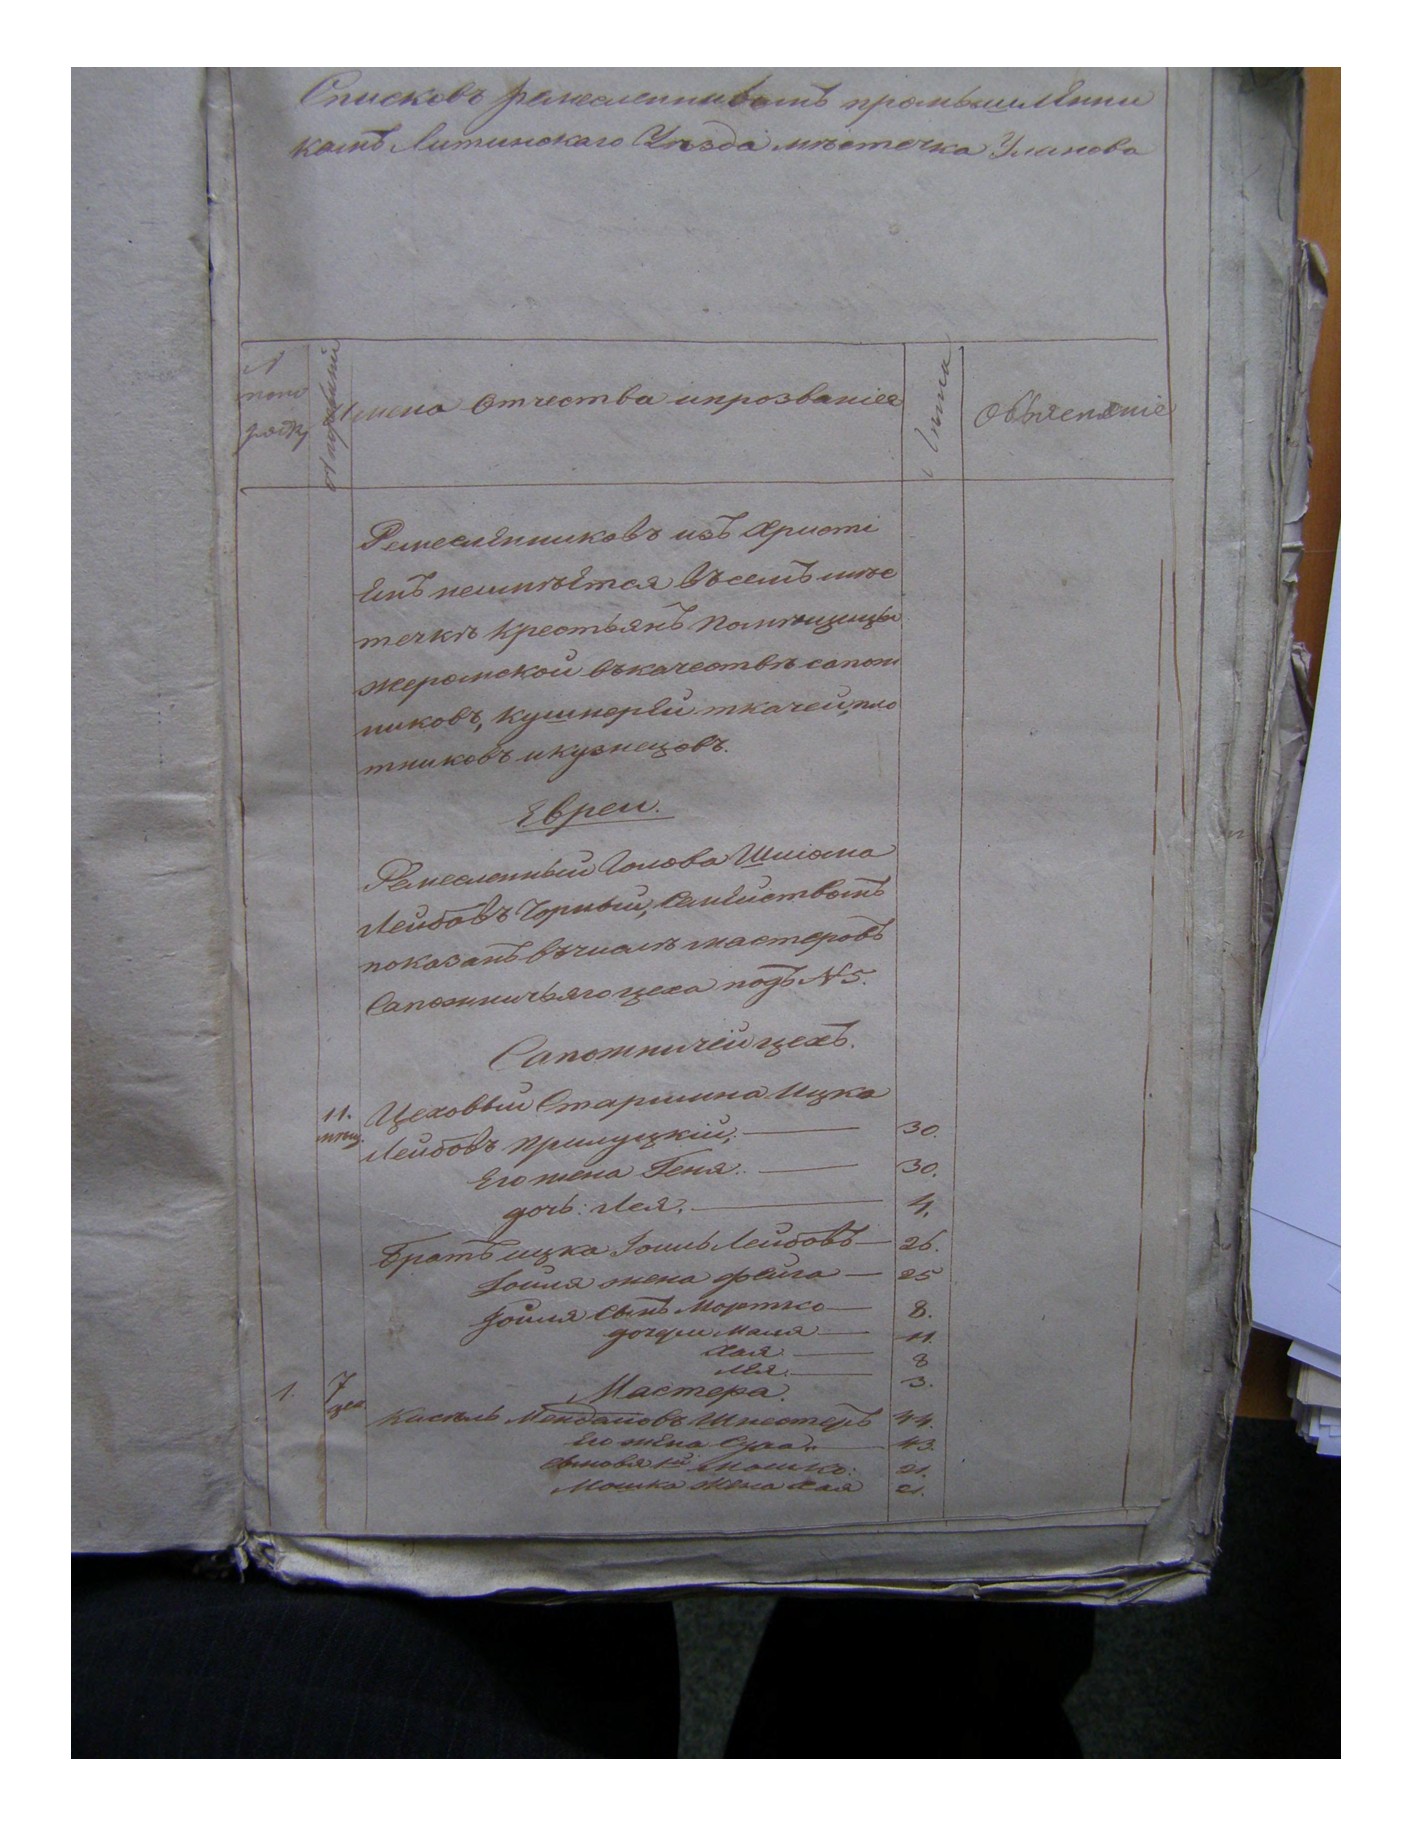 Списковъ ремесленникамъ промышленни
камъ Литинскаго Уѣзда мѣстечка Уланова
№
Имена Отчества ипрозваніе
Лѣта
Объясненіе
Ремесленниковъ изъ Христі
янъ неимѣется Въсемъ мѣс
течкѣ Крестьянъ Помѣщицы
въкачествѣ сапож
никовъ, Кушнерей ткачей, пло
тниковъ икузнецовъ.
Евреи.
Ремесленный Голова Шліома
Лейбовъ Чорный, Семействомъ
показанъ въчислѣ мастеровъ
Сапожничьяго цеха подъ №5.
Сапожничей цехъ.
11. Цеховый Старшина Ицко
мѣщ. Лейбовъ Прилуцкій, 30.
Его жена Геня. 30.
дочь: Лея. 4.
Братъ ицка Іойль Лейбовъ 26.
Іойля жена фейга 25
Іойля Сынъ Мортко 8.
дочери Маля 11
Хая 8
Лея. 3.
Мастера.
1. 7 цех Кисель Менделовъ 44.
Его жена 43.
Сыновя 1й Мошко: 21.
Мошка Жена Хая 21.